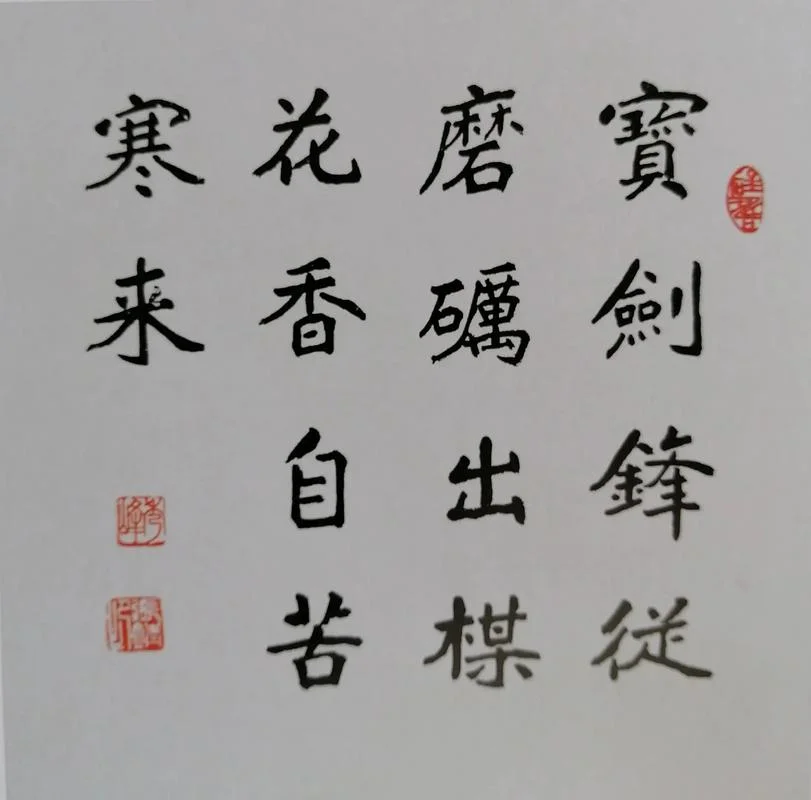 寶劍鋒從
磨礪出楳
花香自苦
寒来